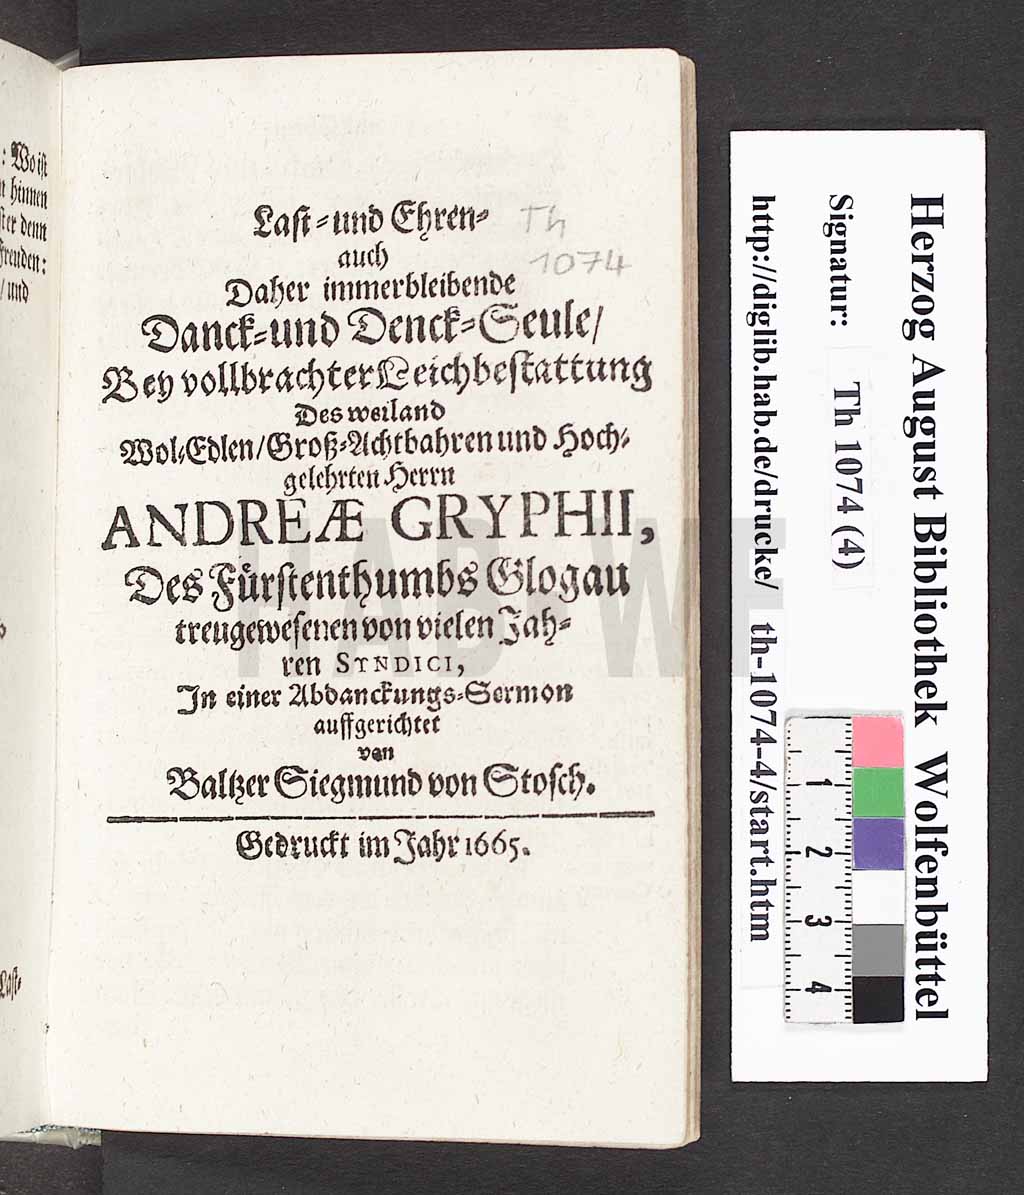 : Wo ist
n hinnen
ster denn
Freuden:
/ und
Last-
Last-und Ehren-
auch
Daher immerbleibende
Danck-und Denck-Seule/
Bey vollbrachter Leichbestattung
Des weiland
Wol-Edlen/Groß-Achtbahren und Hoch-
gelehrten Herrn
ANDREÆ GRYPHII,
Des Fürstenthumbs Glogau
treugewesenen von vielen Jah-
ren SYNDICI,
In einer Abdanckungs-Sermon
auffgerichtet
von
Baltzer Siegmund von Stosch.
Gedruckt im Jahr 1665.
Th
1074
HAB WF
Herzog August Bibliothek Wolfenbüttel
Signatur: Th 1074 (4)
http://diglib.hab.de/drucke/ th-1074-4/start.htm
1 2 3 4